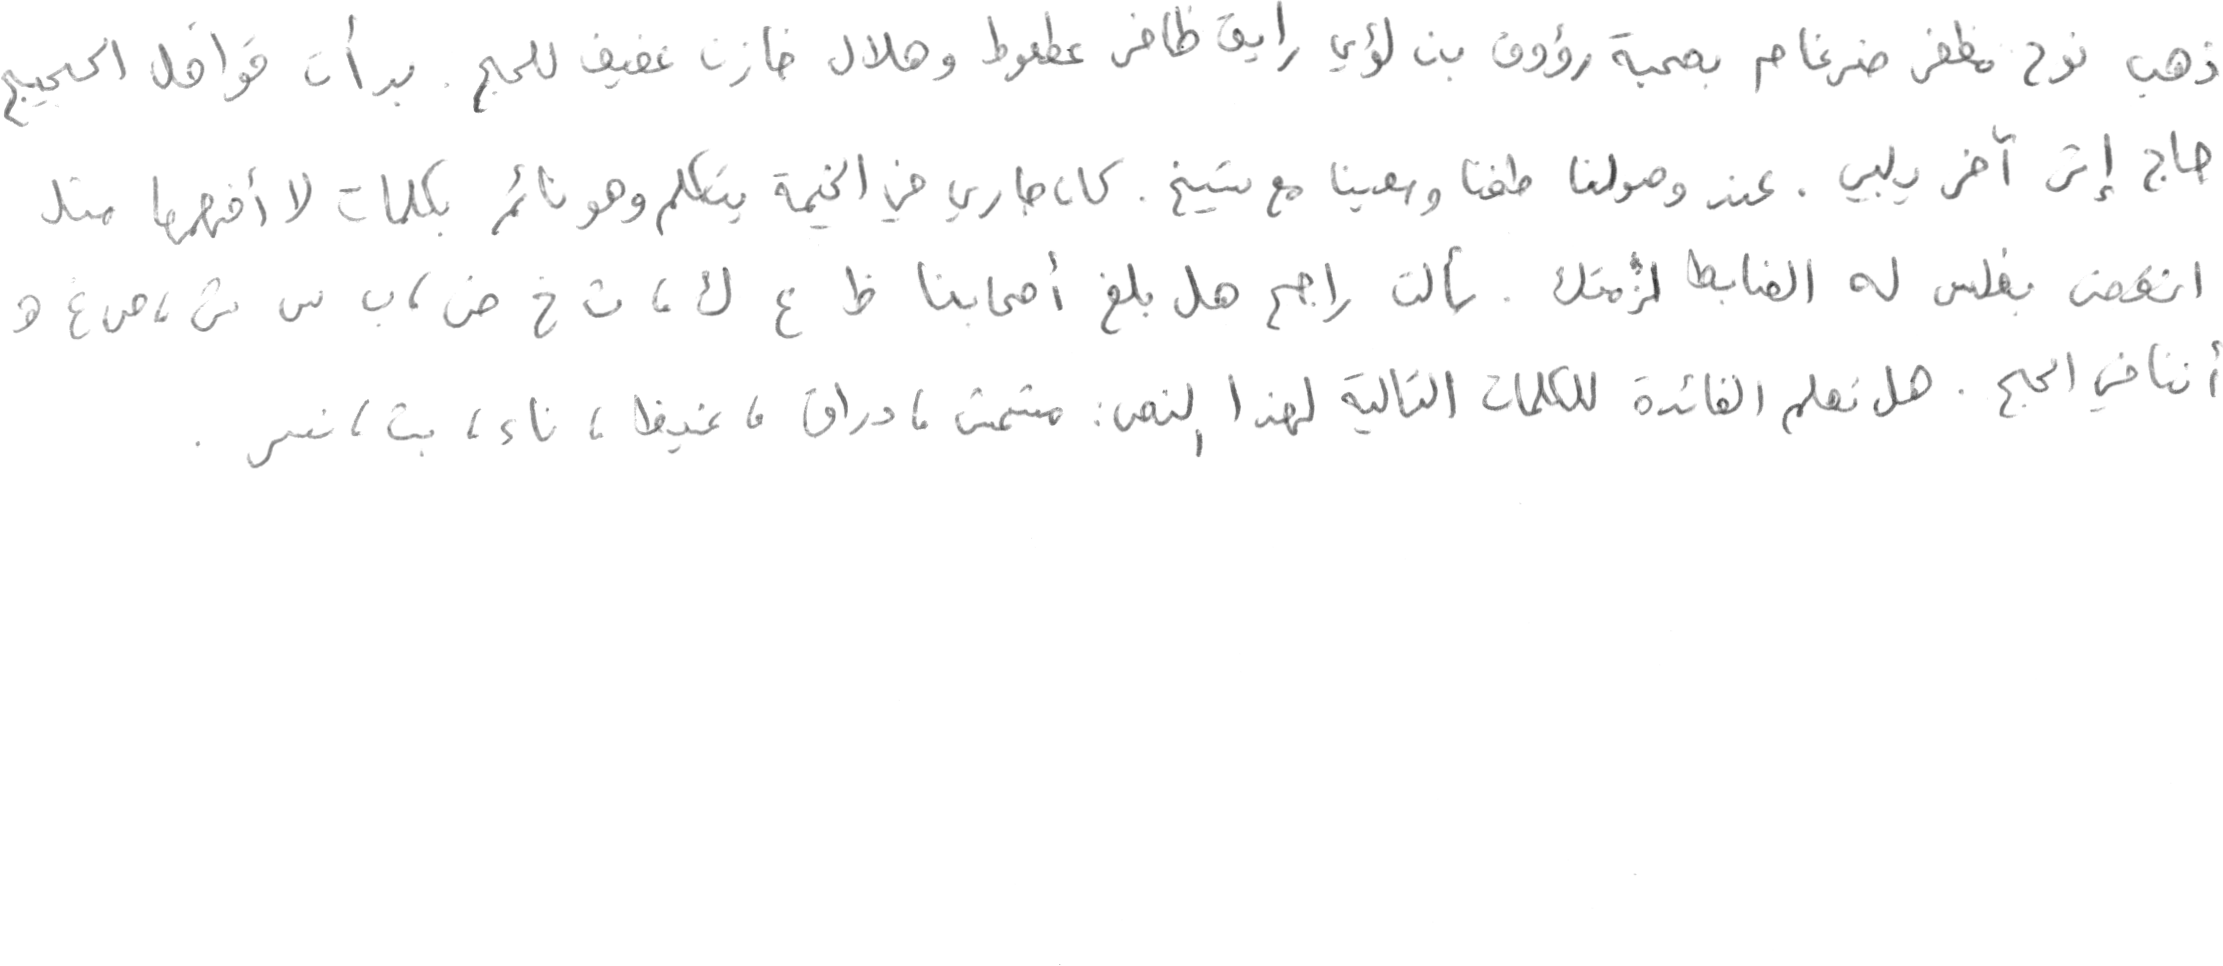 ذهب نوح مظفر ضرغام بصحبة رؤوف بن لؤي رايق ظافر عطعوط وهلال خازن عفيف للحج. بدأت قوافل الحجيج
حاج إثر آخر يلبي. عند وصولنا طفنا وسعينا مع شيخ. كان جاري في الخيمة يتكلم وهو نائم بكلمات لا أفهمها مثل
انتعض بغلس له الضابط لزمتك. سألت راجح هل بلغ أصحابنا ظ ع ك، ث خ ض، ب س ش، ص غ ه
أننا في الحج. هل تعلم الفائدة للكلمات التالية لهذا النص: مشمش، دراق، غنيظ، ناء، بت، نسر.